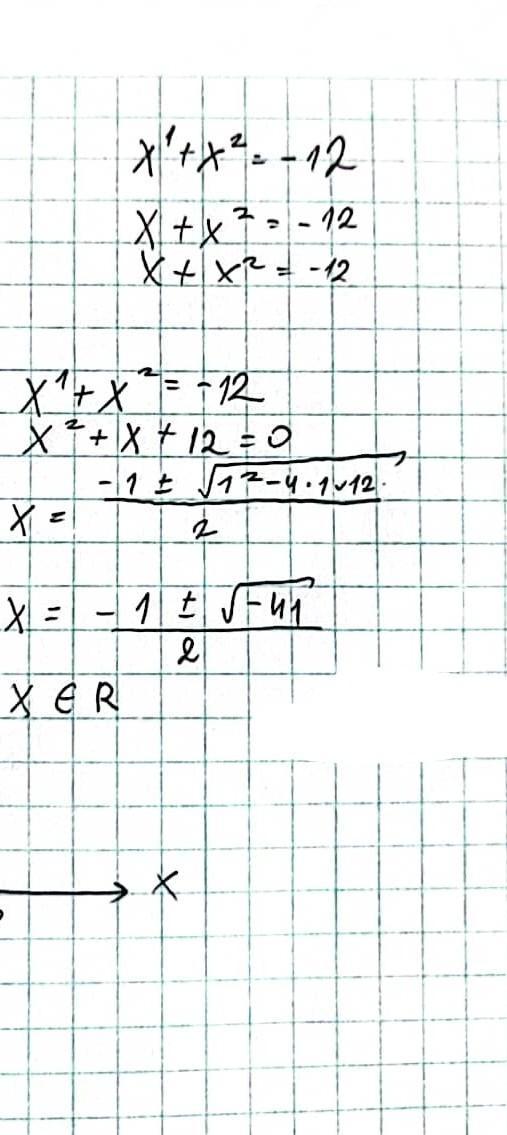 x¹+x²=-12
x+x²=-12
x+x²=-12
x¹+x²=-12
x²+x+12=0
x=(-1±√(1²-4·1·12))/2
x=(-1±√(-41))/2
x∈R
x